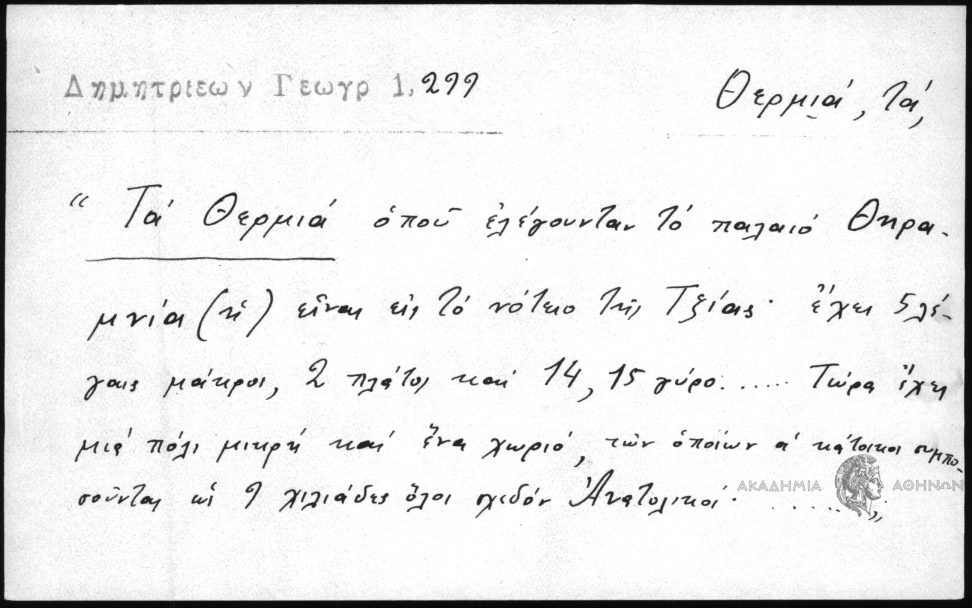 Δημητριεων Γεωγρ 1, 299
Θερμιά, τά,
“ Τά Θερμιά ὁποῦ ἐλέγουνταν τό παλαιό Θηρα-
μνία (ἡ) εἶναι εἰς τό νότειο τῆς Τζίας· ἔχει 5 λέ-
γαις μάκροι, 2 πλάτοι καί 14, 15 γύρο...... Τώρα ἔχει
μιά πόλι μικρή καί ἕνα χωριό, τῶν ὁποίων ἁ κάτοικοι συμπο-
σοῦνται εἰ 9 χιλιάδες ὅλοι σχεδόν Ἀνατολικοί· ..... „
ΑΚΑΔΗΜΙΑ ΑΘΗΝΩΝ